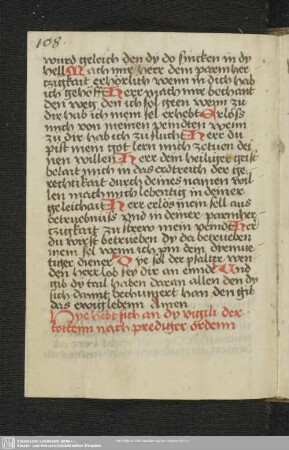 108.
wurd geleich den dy do sincken in dy
hell Mach mir herr dein parmher
tzigkait erhörlich wenn in dich hab
ich gehofft Herr mach mir bechant
den weg den ich sol geen wenn zu
dir hab ich mein sel erhebt Erloss
mich von meinen veindten wenn
zu dir hab ich zuflucht Herr du
pist mein got lern mich zetuen dei
nen willen Herr dein heiliger geist
belait mich in das erdtreich der ge
rechtikait durch deines namen wil
len mach mich lebentig in deiner
geleichait Herr erlos mein sell aus
betruebnuss Und in deiner parmher
tzigkait zu strew mein veindt Herr
du wirst betrueben dy da betrueben
mein sel wenn ich pin dein
tiger diener sel der psalter
den herr lob sey dir an ennde Und
gib dy tail haben daran allen den dy
sich damit han den gib
das ewig leben Amen
Hye hebt sich an dy vigili der
totten nach prediger orden